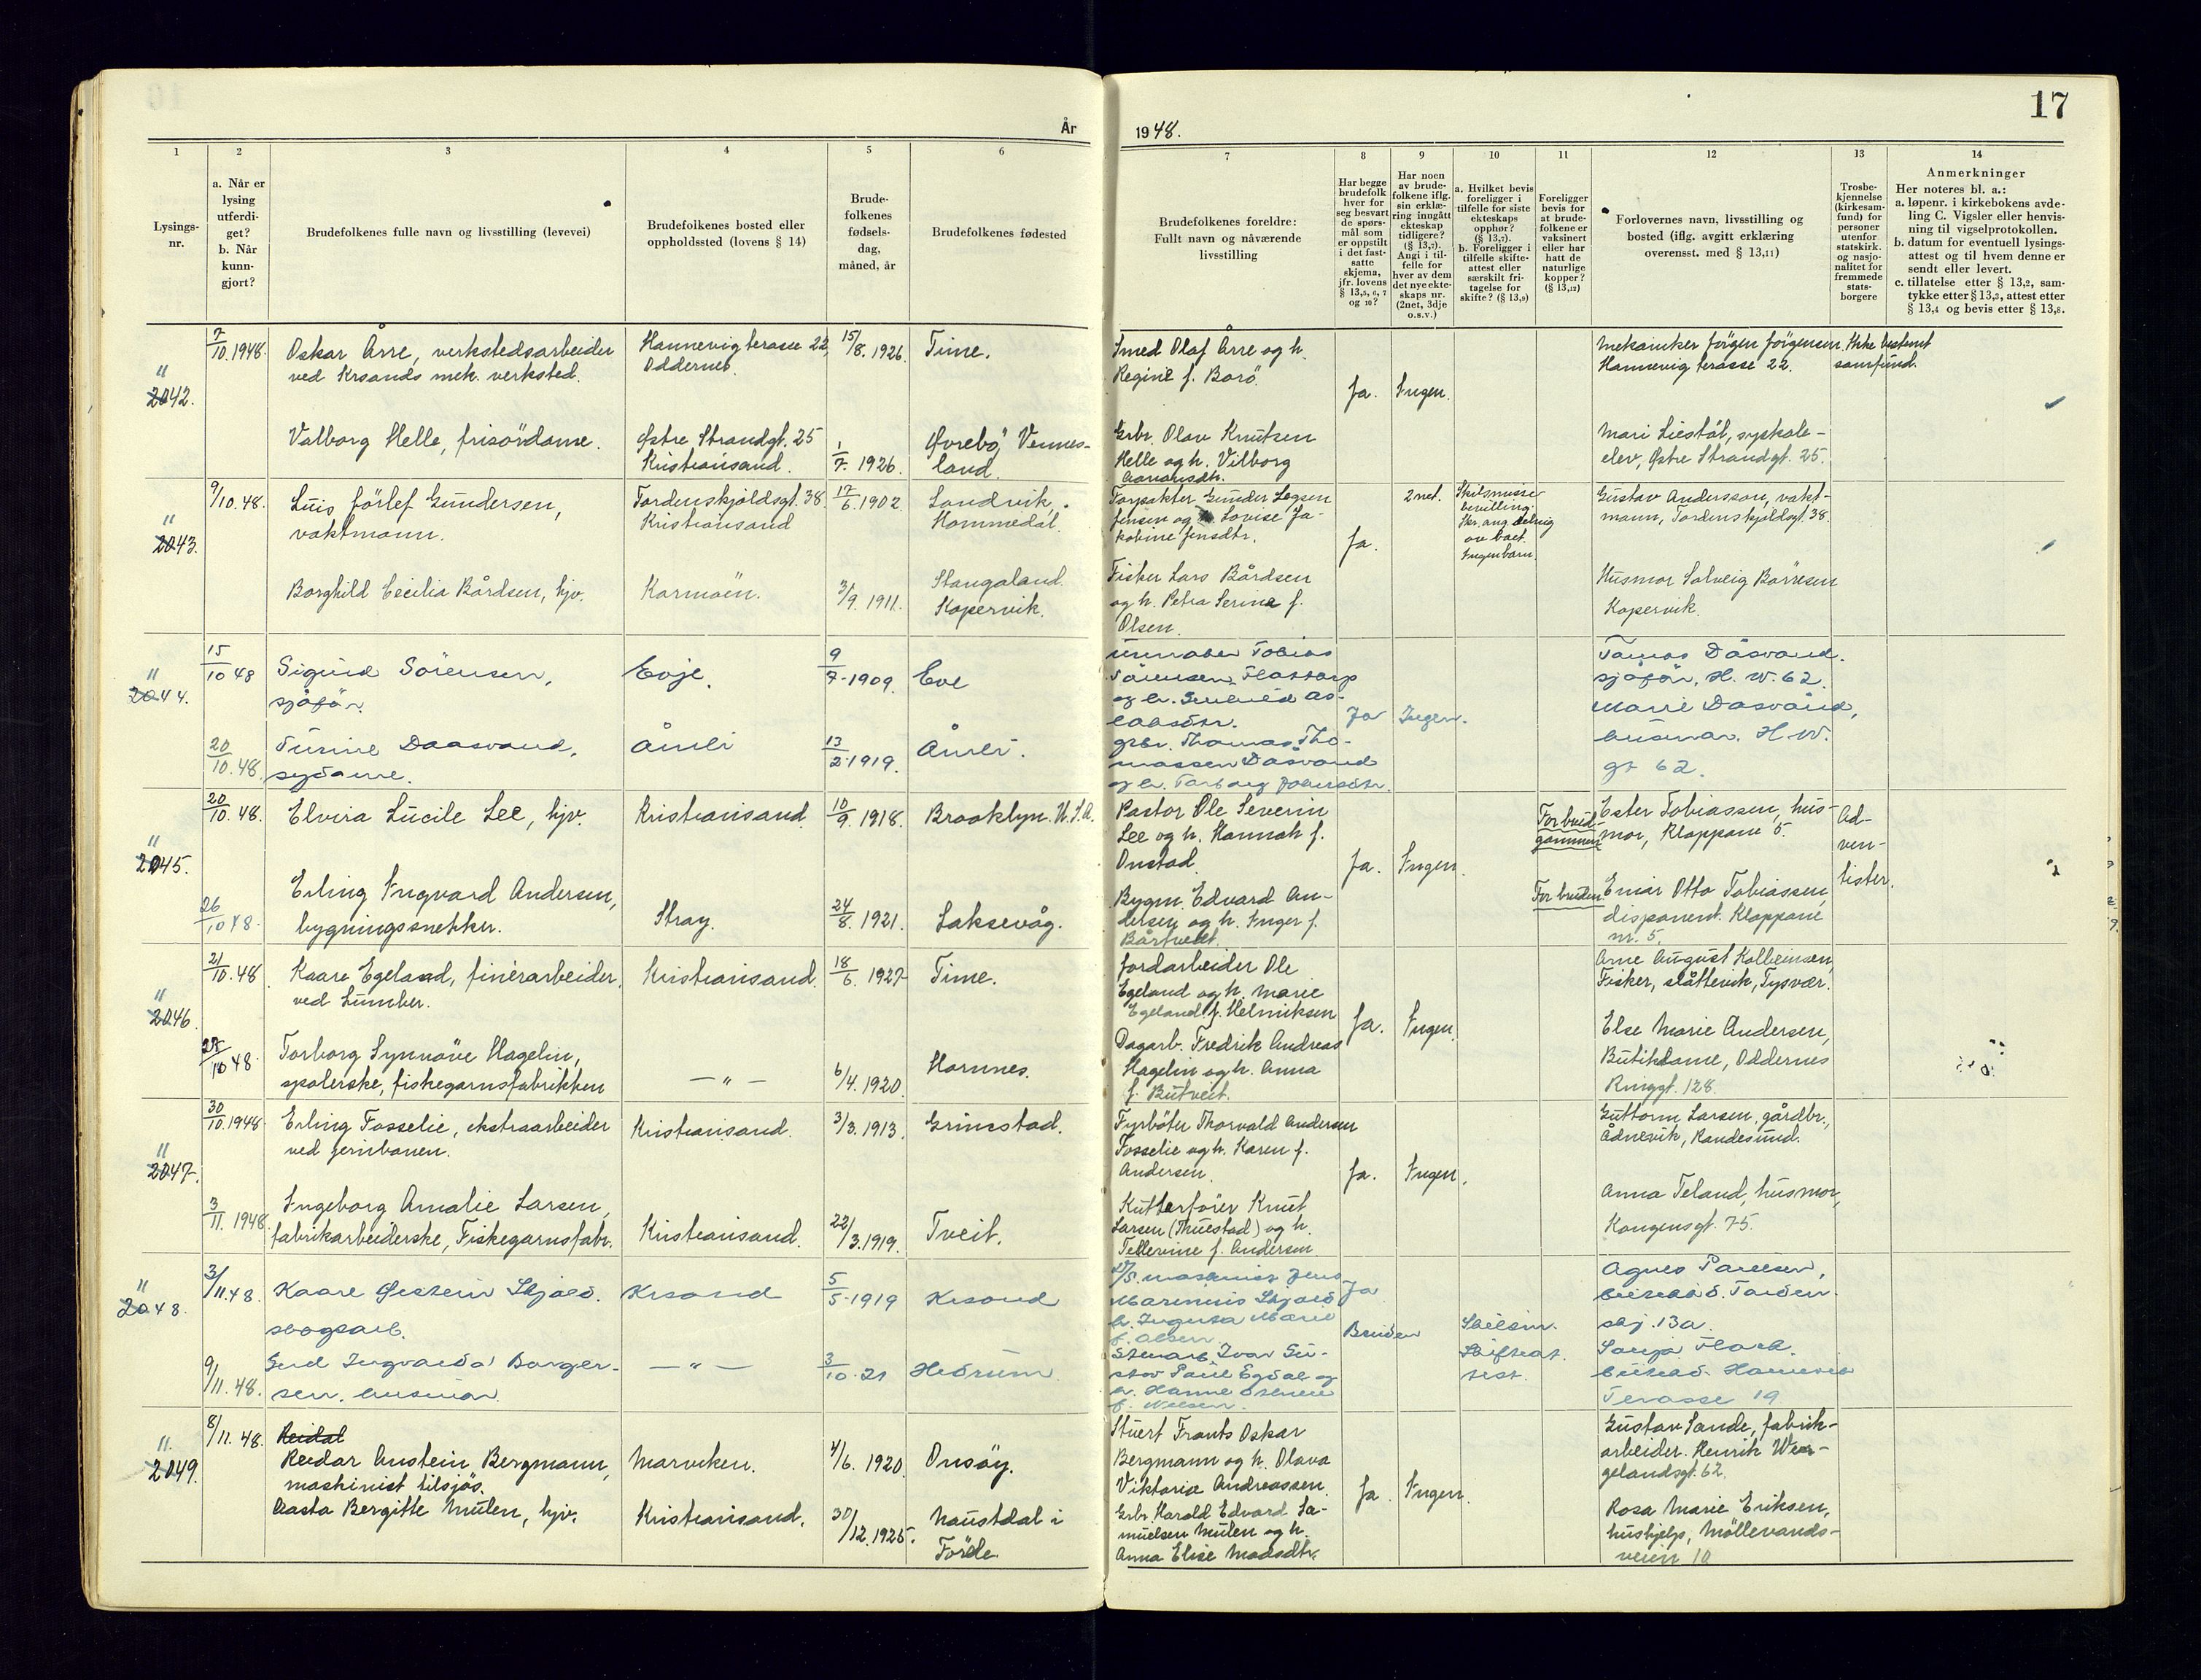 År
1948.
17
1
2
3
4
5
6
7
8
9
10
11
12
13
14
Lysings-
nr.
a. Når er
lysing
utferdi-
get?
b. Når
kunn-
gjort?
Brudefolkenes fulle navn og livsstilling (levevei)
Brudefolkenes bosted eller
oppholdssted (lovens § 14)
Brude-
folkenes
fødsels-
dag,
måned, år
Brudefolkenes fødested
Brudefolkenes foreldre:
Fullt navn og nåværende
livsstilling
Har begge
brudefolk
hver for
seg besvart
de spørs-
mål som
er oppstilt
i det fast-
satte
skjema,
jfr. lovens
§ 13,5, 6, 7
og 10?
Har noen
av brude-
folkene iflg.
sin erklæ-
ring inngått
ekteskap
tidligere?
(§ 13,7).
Angi i til-
felle for
hver av dem
det nye ekte-
skaps nr.
(2net, 3dje
o.s.v.)
a. Hvilket bevis
foreligger i
tilfelle for siste
ekteskaps
opphør?
(§ 13,7).
b. Foreligger i
tilfelle skifte-
attest eller
særskilt fri-
tagelse for
skifte? (§ 13,9)
Foreligger
bevis for
at brude-
folkene er
vaksinert
eller har
hatt de
naturlige
kopper?
(§ 13,12)
Forlovernes navn, livsstilling og
bosted (iflg. avgitt erklæring
overensst. med § 13,11)
Trosbe-
kjennelse
(kirkesam-
fund) for
personer
utenfor
statskirk.
og nasjo-
nalitet for
fremmede
stats-
borgere
Anmerkninger
Her noteres bl. a.:
a. løpenr. i kirkebokens avde-
ling C. Vigsler eller henvis-
ning til vigselprotokollen.
b. datum for eventuell lysings-
attest og til hvem denne er
sendt eller levert.
c. tillatelse etter § 13,2, sam-
tykke etter § 13,3, attest etter
§ 13,4 og bevis etter § 13,8.
2042.
7/10.1948.
Oskar Årre, verkstedsarbeider
ved Krsands mek. verksted.
Hannevig terasse 22,
Oddernes.
15/8. 1926.
Time.
Smed Olaf Årre og h.
Regine f. Borö.
Ja.
Ingen.
Mekaniker Jörgen Jörgensen
Hannevig terasse 22.
Ikke bestemt
samfund.
Valborg Helle, frisördame.
Østre Strandgt. 25
Kristiansand.
1/7. 1926.
Øvrebö, Vennes-
land.
Grbr. Olav Knutsen
Helle og h. Vilborg
Mari Liestöl, syskole-
elev, Østre Strandgt. 25.
2043.
9/10.48.
Gundersen,
vaktmann.
Tordenskjoldsgt. 38
Kristiansand
17/6.1902
Landvik,
Hommedal.
Gunder
Jensen og Lovise Ja-
kobine Jensdtr.
Ja.
2net.
Skilsmisse
bevilling.
Ingen barn
Gustav Andersson, vakt-
mann, Tordenskjoldsgt. 38.
Borghild Cecilia Bårdsen, hjv.
Karmöin.
3/9. 1911.
Stangaland
Kopervik.
Fisker Lars Bårdsen
og h. Petra Serine f.
Olsen.
Husmor Solveig Börresen
Kopervik.
2044.
15/10 48
Sigurd Sörensen,
sjåför.
Evje.
9/7.1909.
Eve
Tobias
Sörensen
Ja
Ingen.
Tomas Dåsvand.
sjåför, H. W. 62.
Marie Dåsvand,
husmor. H.W.
gt 62.
20/10.48.
Daasvand,
sydame.
Åmli
13/2.1919.
Åmli.
grbr. Thomas Tho-
massen Dåsvand
og h. Torborg
2045.
20/10.48.
Elvira Lucile Lee, hjv.
Kristiansand
10/9. 1918.
Brooklyn. U.S.A.
Pastor Ole Severin
Lee og h. Hannah f.
Onstad.
Ja.
Ingen.
For brud-
gommen
Ester Tobiassen, hus-
mor, Kloppane 5.
Ad-
ven-
tister.
26/10 48.
Erling Ingvard Andersen,
bygningssnekker.
Stray.
24/8. 1921.
Laksevåg.
Bygm. Edvard An-
dersen og h. Inger f.
Bårtvedt.
For bruden
Einar Otto Tobiassen,
disponent. Kloppane
nr. 5.
2046.
21/10.48
Kaare Egeland, finérarbeider
ved Lumber.
Kristiansand.
18/6. 1927
Time.
Jordarbeider Ole
Egeland og h. Marie
Egeland f. Helmiksen
Ja.
Ingen.
Arne August Kolbeinsen,
Fisker, Slåttevik, Tysvær.
10 48.
Torborg Synnöve Hagelin,
spolerske, fiskegarnsfabrikken
— " —
6/4. 1920
Hornnes.
Dagarb. Fredrik Andreas
Hagelin og h. Anna
f. Butveit.
Else Marie Andersen,
Butikdame, Oddernes
Ringgt. 128.
2047.
30/10.1948.
Erling Fosselie, ekstraarbeider
ved jernbanen.
Kristiansand.
3/3. 1913.
Grimstad.
Fyrböter Thorvald Andersen
Fosselie og h. Karen f.
Andersen.
Ja.
Ingen.
Guttorm Larsen, gårdbr.,
Ådnevik, Randesund.
3/11. 1948.
Ingeborg Amalie Larsen,
fabrikarbeiderske, Fiskegarnsfabr.
Kristiansand.
22/3.1919.
Tveit.
Kutterförer Knut
Larsen (Thuestad) og h.
Tellevine f. Andersen.
Anna Teland, husmor,
Kongensgt. 75.
2048.
3/11.48.
Kaare Øestein Skjold.
skogsarb.
Krsand
5/5.1919
Krsand
maskinist Jens
Skjold
Ja
Agnes
skj. 13a.
9/11.48.
Gerd Borger-
sen, husmor
— " —
3/10.21
Hedrum.
Stuert Ivar Gu-
stav
Bruden
Skilsm.
Skifteat-
test.
Sonja
Terasse 19
2049.
8/11.48.
Reidal
Reidar Anstein Bergmann,
maskinist tilsjös.
Marviken.
4/6. 1920.
Onsöy.
Stuert Frants Oskar
Bergmann og h. Olava
Viktoria Andreassen.
Ja.
Ingen.
Gustav Sande, fabrik-
arbeider. Henrik Wer-
gelandsgt. 62.
Aasta Bergitte Mulen, hjv.
Kristiansand.
30/12.1925.
Naustdal i
Förde.
Grbr. Harald Edvard Sa-
muelsen Mulen og h.
Anna Elise Madsdtr.
Rosa Marie Eriksen,
hushjelp, Möllevands-
veien 10